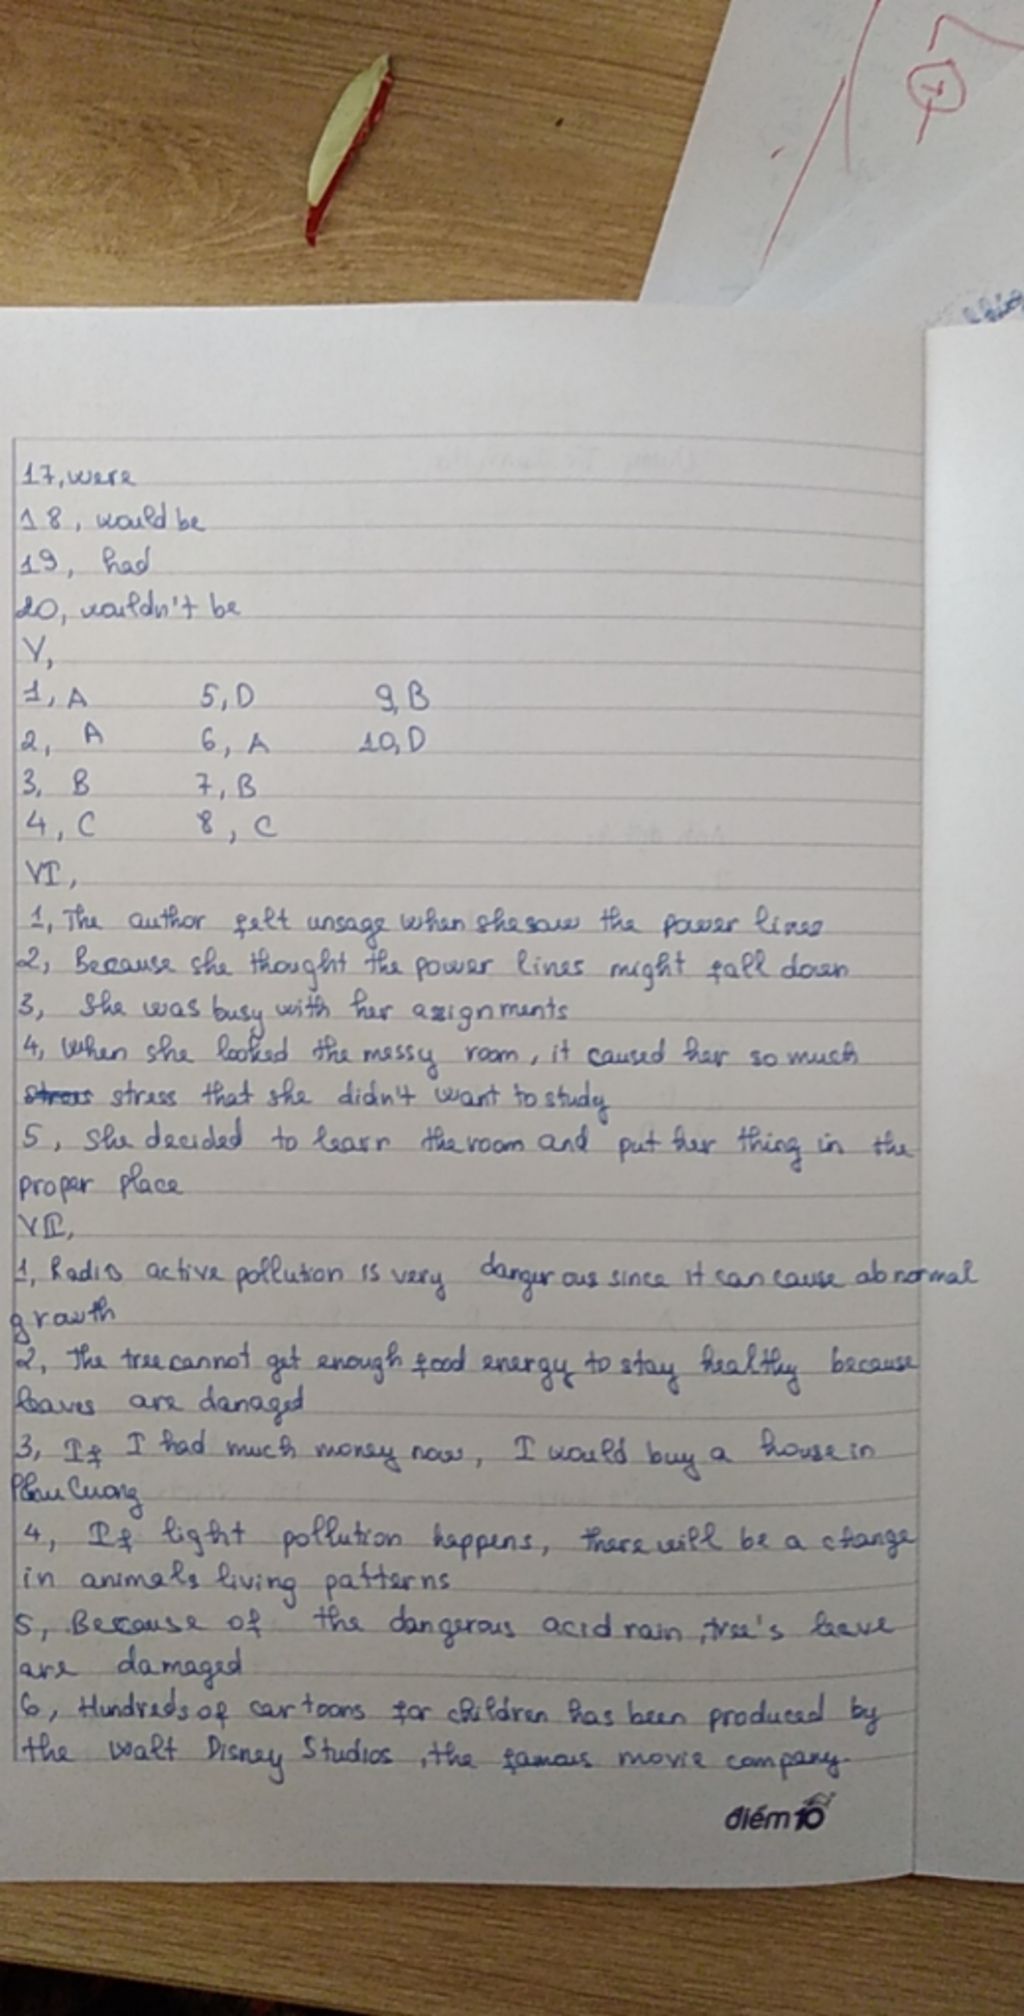 17, were
18, would be
19, had
20, wouldn't be
V,
1, A 5, D 9, B
2, A 6, A 10, D
3, B 7, B
4, C 8, C
VI,
1, The author felt unsage when she saw the power lines
2, Because she thought the power lines might fall down
3, She was busy with her assignments
4, When she looked the messy room, it caused her so much
stress stress that she didn't want to study
5, She decided to learn the room and put her thing in the
proper place
VII,
1, Radio active pollution is very dangerous since it can cause abnormal
growth
2, The tree cannot get enough food energy to stay healthy because
leaves are danaged
3, If I had much money now, I would buy a house in
Phu Cuong
4, If light pollution happens, there will be a change
in animals living patterns
5, Because of the dangerous acid rain, tree's leave
are damaged
6, Hundreds of cartoons for children has been produced by
the Walt Disney Studios, the famous movie company.
điểm 10